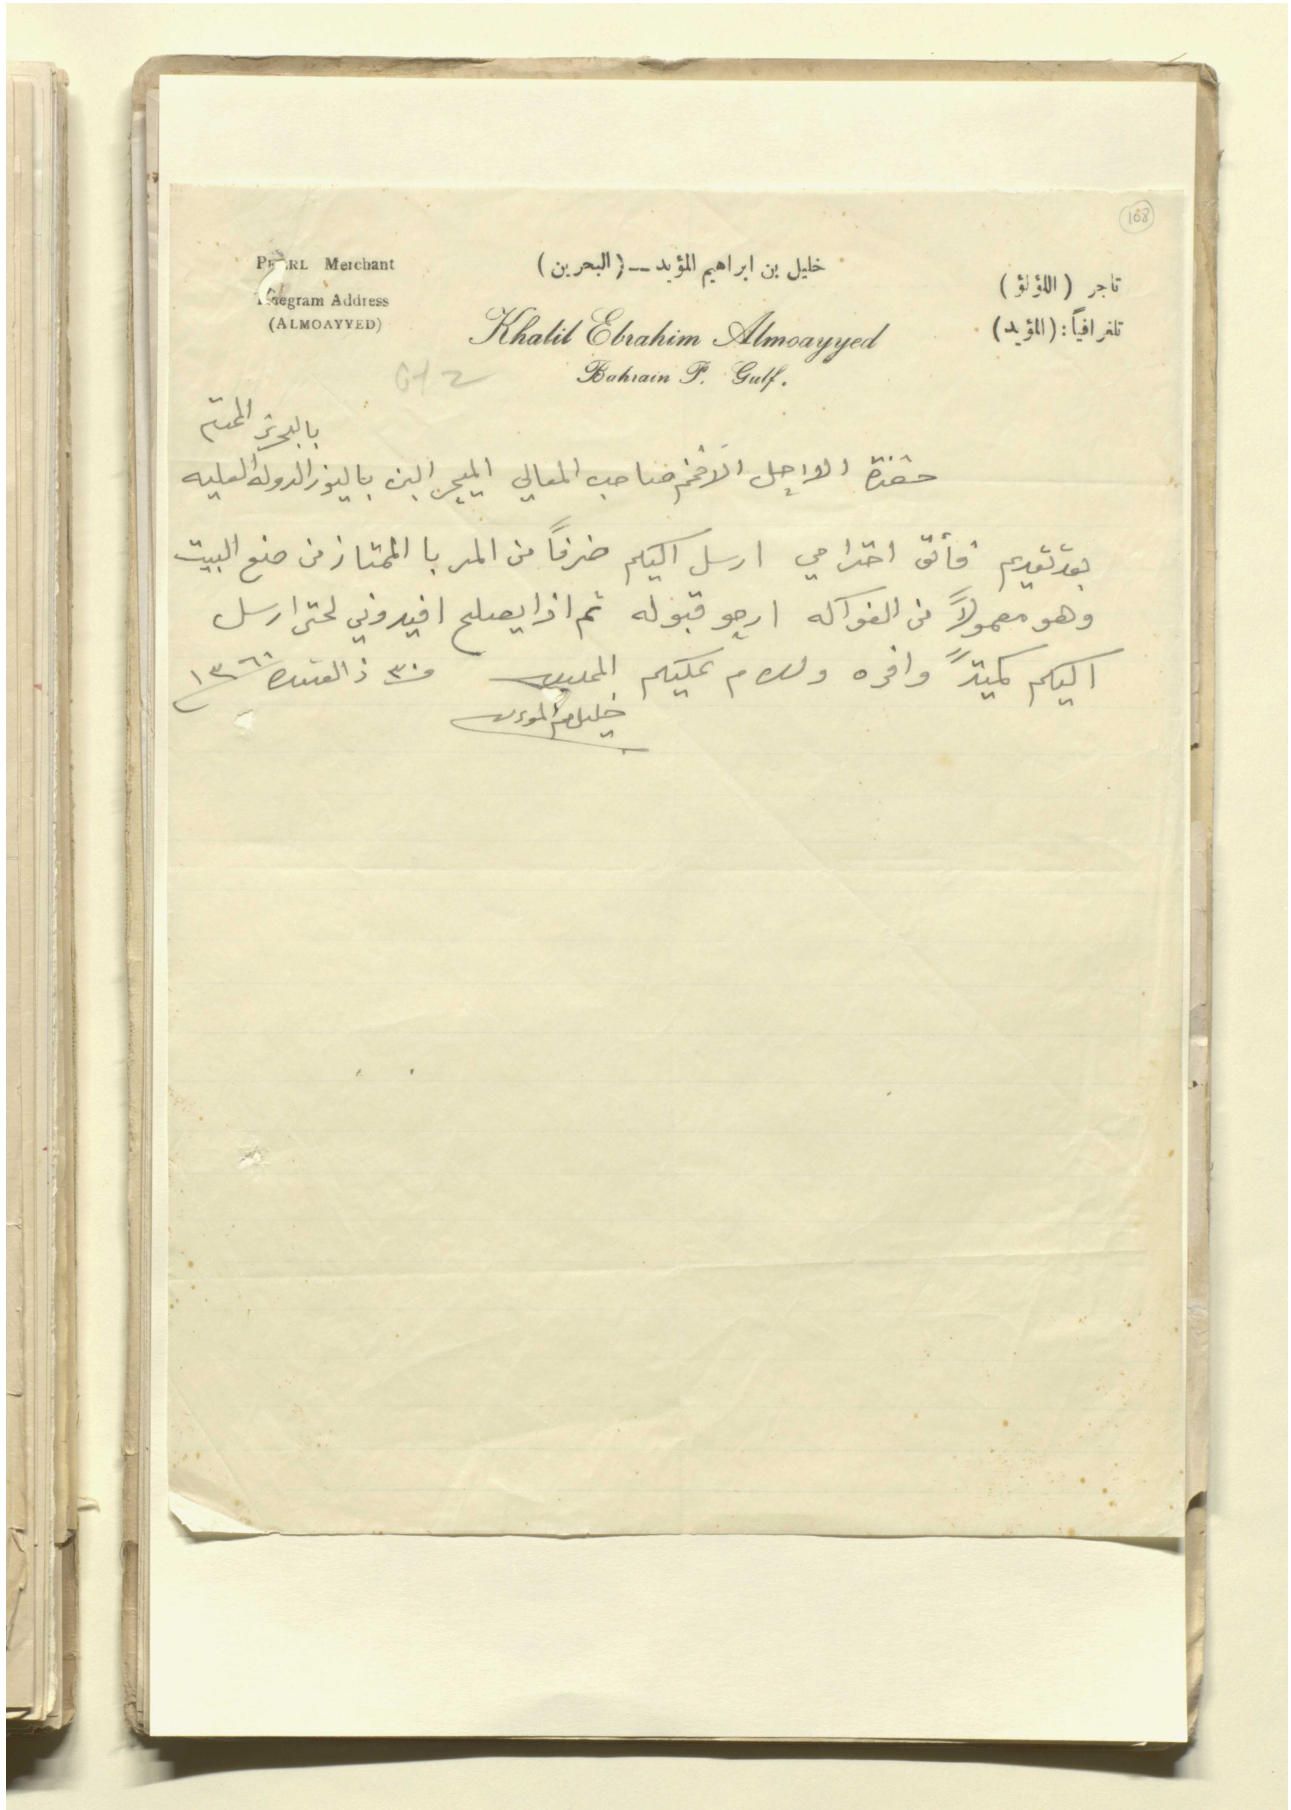 168
PEARL Merchant
Telegram Address
(ALMOAYYED)
خليل بن ابراهيم المؤيد — (البحرين)
Khalil Ebrahim Almoayyed
Bahrain P. Gulf.
تاجر (اللؤلؤ)
تلغرافياً: (المؤيد)
بالبحرين المحترم
حضرة الاجل الافخم صاحب المعالي الميجر البن باليوز الدوله العليه
بعد تقديم فأئق احترامي ارسل اليكم ضرفاً من المربا الممتاز من صنع البيت
وهو معمولاً من الفواكه ارجو قبوله ثم اذا يصلح افيدوني لحتى ارسل
اليكم كميتاً وافره ولسلام عليكم المخلص ٣٠ ذالقعده ١٣٦٠
خليل المؤيد